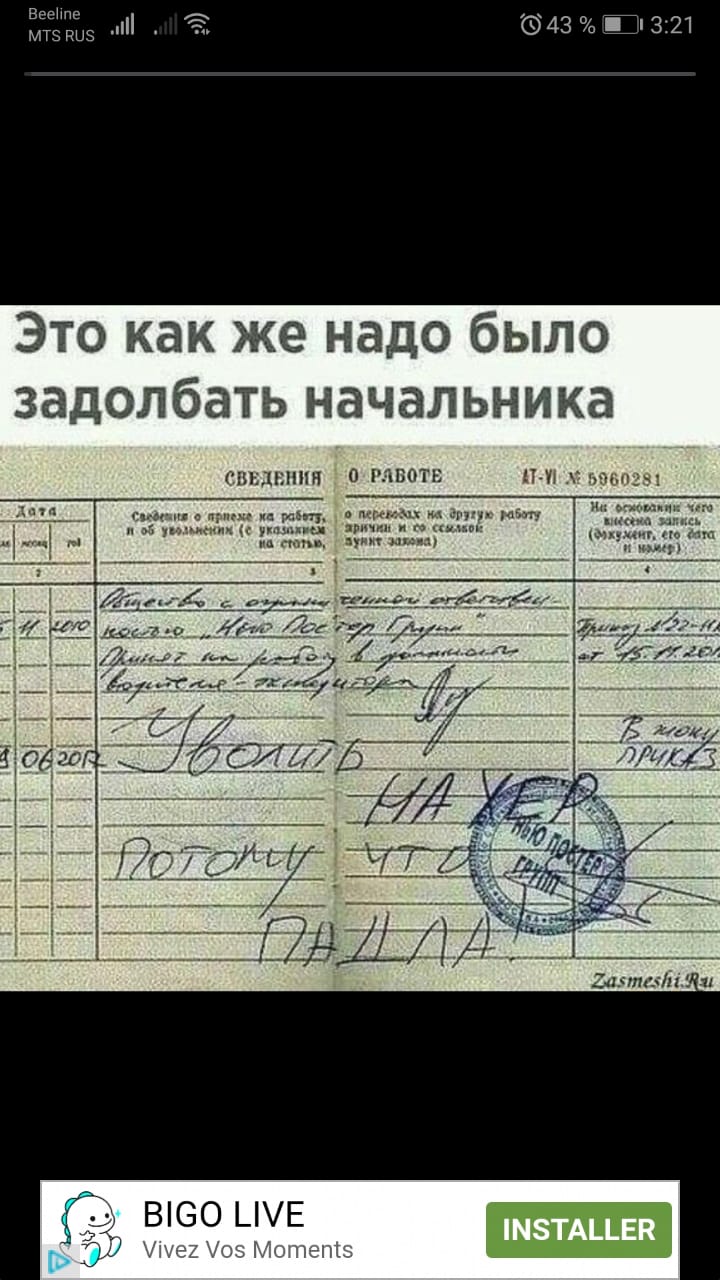 Beeline
MTS RUS
43 % 3:21
Это как же надо было
задолбать начальника
СВЕДЕНИЯ О РАБОТЕ АТ-VI № 5960281
Дата
Сведения о приеме на работу, о переводах на другую работу
и об увольнении (с указанием причин и со ссылкой
на статью, пункт закона)
На основании чего
внесена запись
(документ, его дата
и номер)
месяц год
2 3 4
Общество с ограниченной ответствен-
11 2010 ностью „Нью Постер Групп"
Приказ №22-11/
Принят на работу в должности
от 15.11.201
водителя-экспедитора
В жопу
06 2012 Уволить
ПРИКАЗ
НА ХЕР
ПОТОМУ ЧТО
НЬЮ ПОСТЕР
ГРУПП
ПАДЛА!
Zasmeshi.Ru
BIGO LIVE
Vivez Vos Moments
INSTALLER